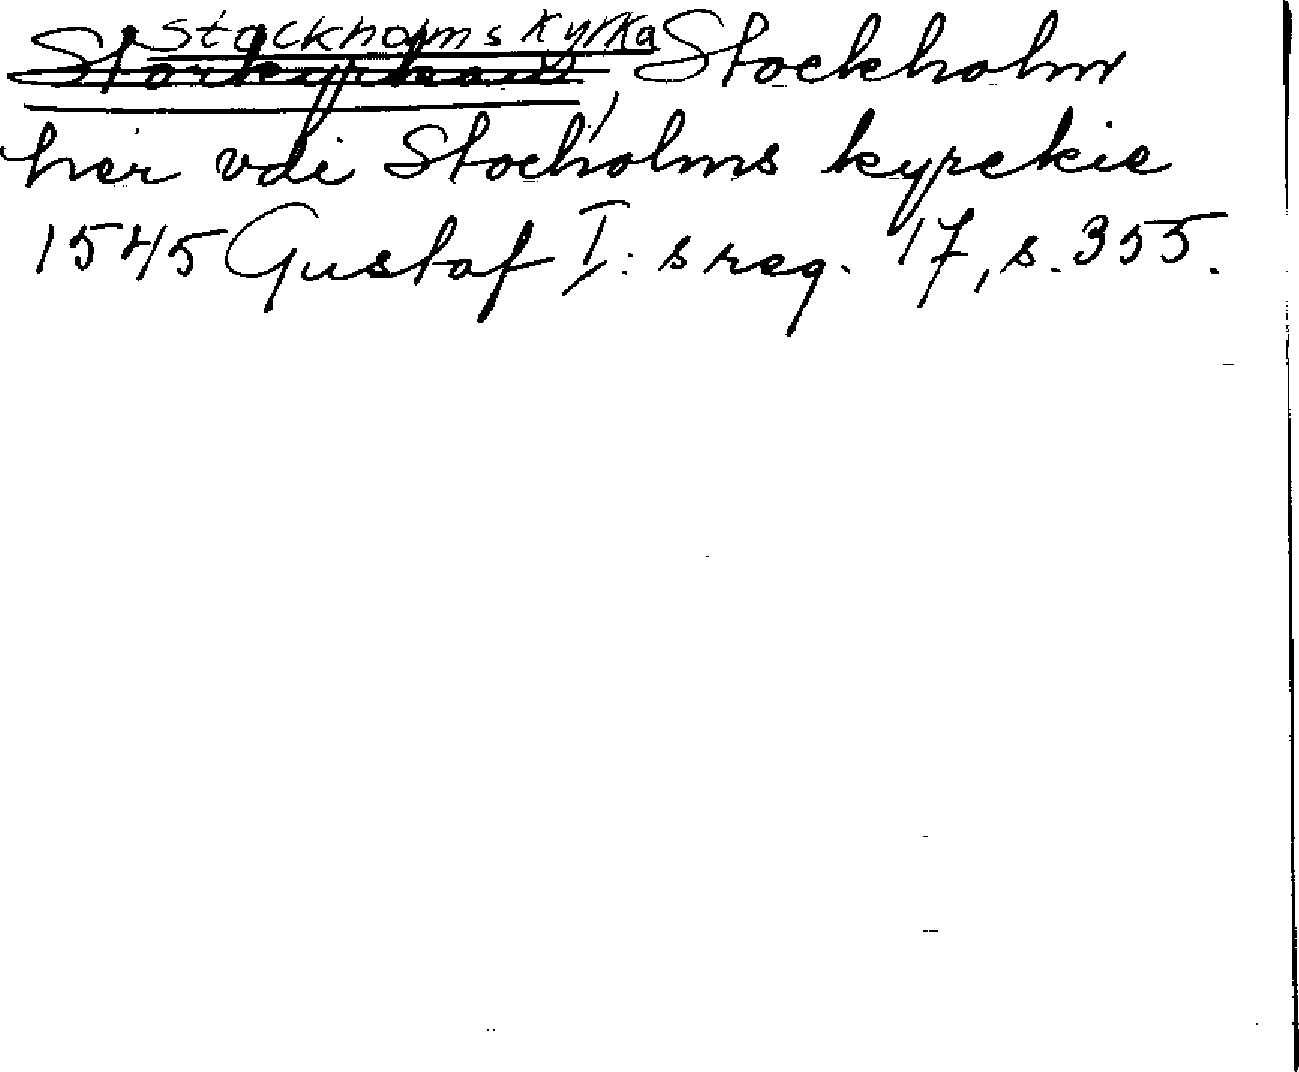 Stockholms Kyrka
Storkyrkan, Stockholm
her vdi Stocholms kyrckie
1545 Gustaf I: s reg. 17, s. 355.